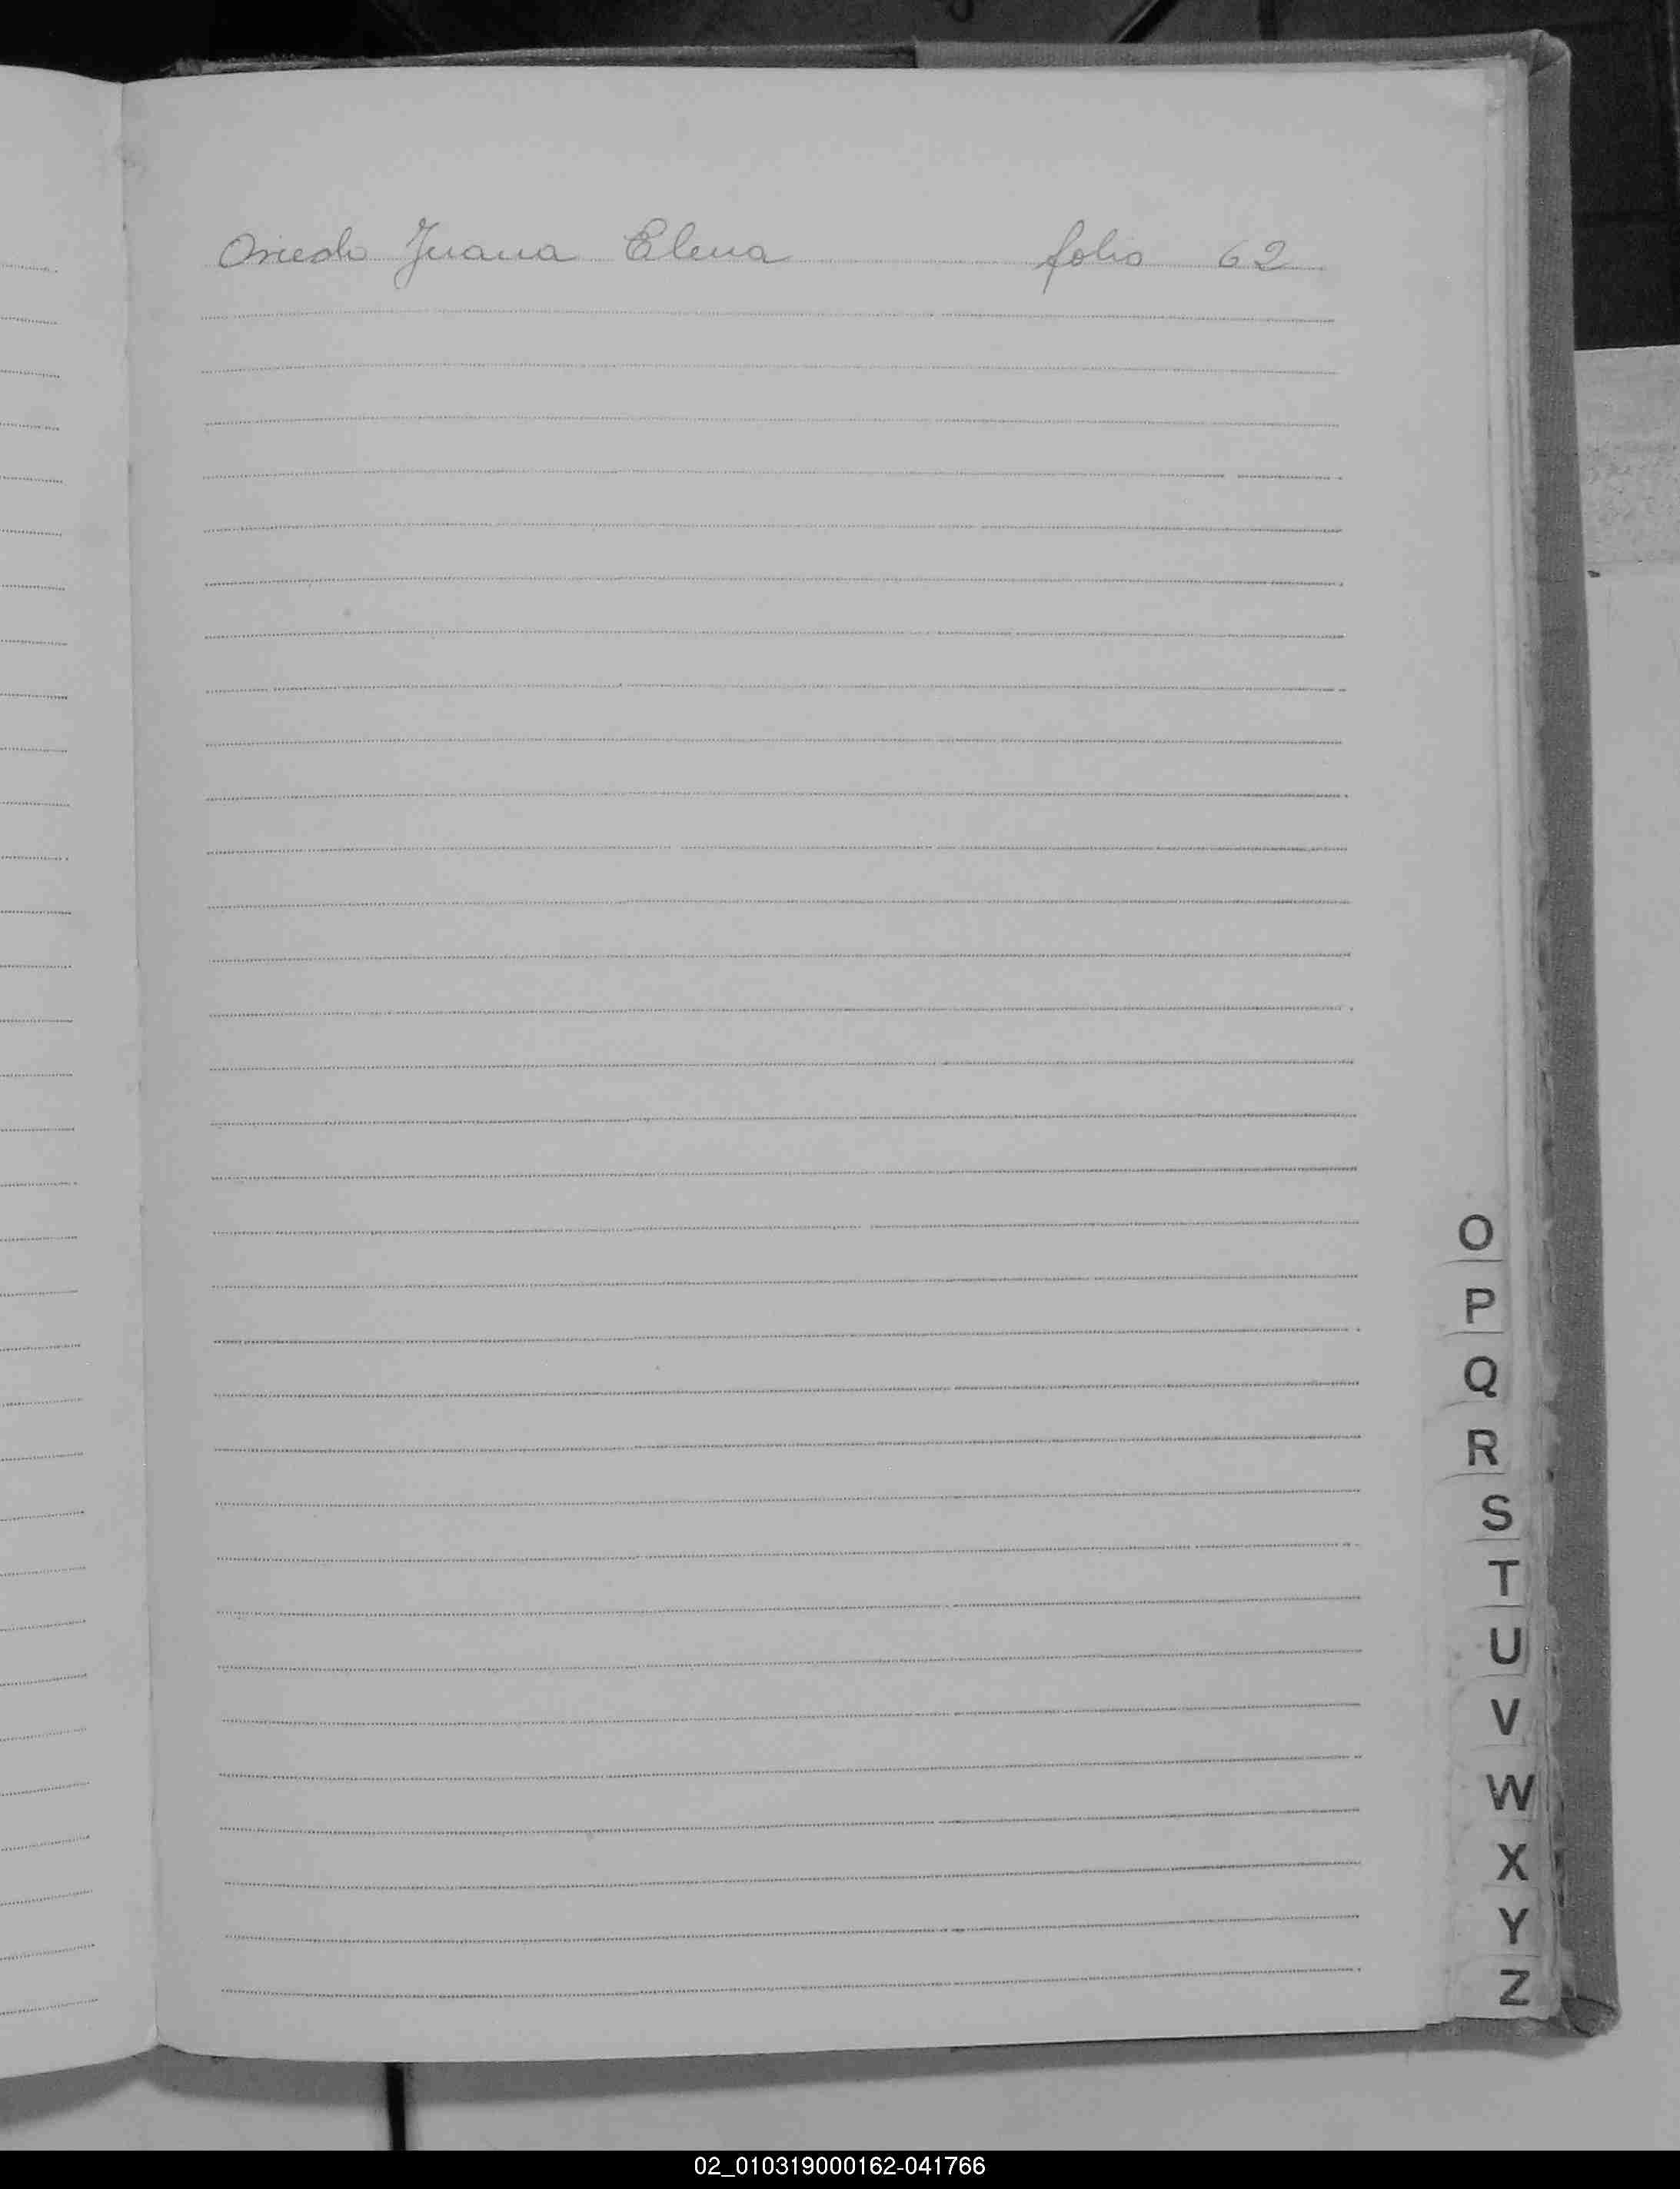 Oviedo Juana Elena folio 62
O
P
Q
R
S
T
U
V
W
X
Y
Z
02_010319000162-041766